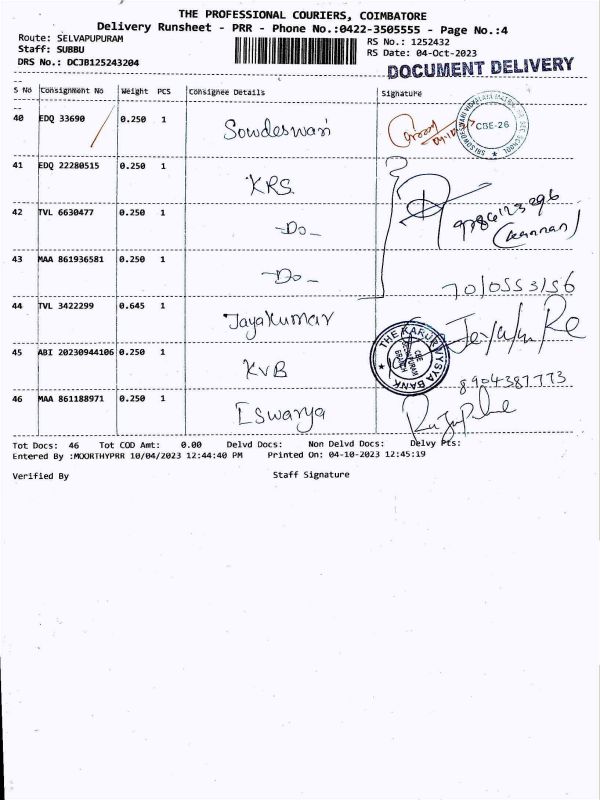 THE PROFESSIONAL COURIERS, COIMBATORE
Delivery Runsheet - PRR - Phone No.:0422-3505555 - Page No.:4
Route: SELVAPUPURAM
RS No.: 1252432
Staff: SUBBU
RS Date: 04-Oct-2023
DRS No.: DCJB125243204
DOCUMENT DELIVERY
S No Consignment No Weight PCS Consignee Details Signature
40 EDQ 33690 0.250 1 Sowdeswari
CBE-26
41 EDQ 22280515 0.250 1 KRS
42 TVL 6630477 0.250 1 -Do-
9786123296
(Kannan)
43 MAA 861936581 0.250 1 -Do-
7010553156
44 TVL 3422299 0.645 1 Jayakumar
45 ABI 20230944106 0.250 1 KVB
THE KARUR VYSYA BANK
8904387773
46 MAA 861188971 0.250 1 Eswarya
Tot Docs: 46 Tot COD Amt: 0.00 Delvd Docs: Non Delvd Docs: Delvy Pts:
Entered By :MOORTHYPRR 10/04/2023 12:44:40 PM Printed On: 04-10-2023 12:45:19
Verified By Staff Signature